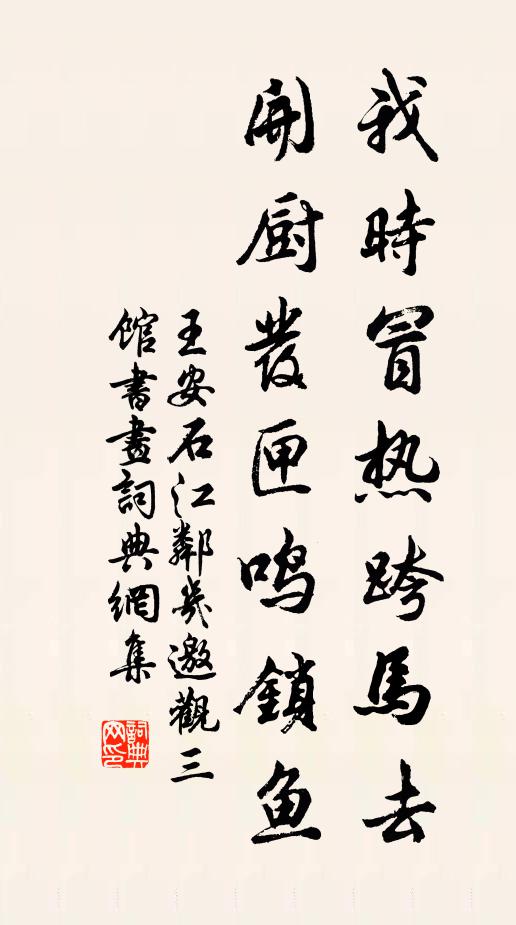 我時冒热跨馬去
開厨發匣鳴鎖魚
王安石江鄰幾邀觀三
館書畫詞典網集
詞典網印